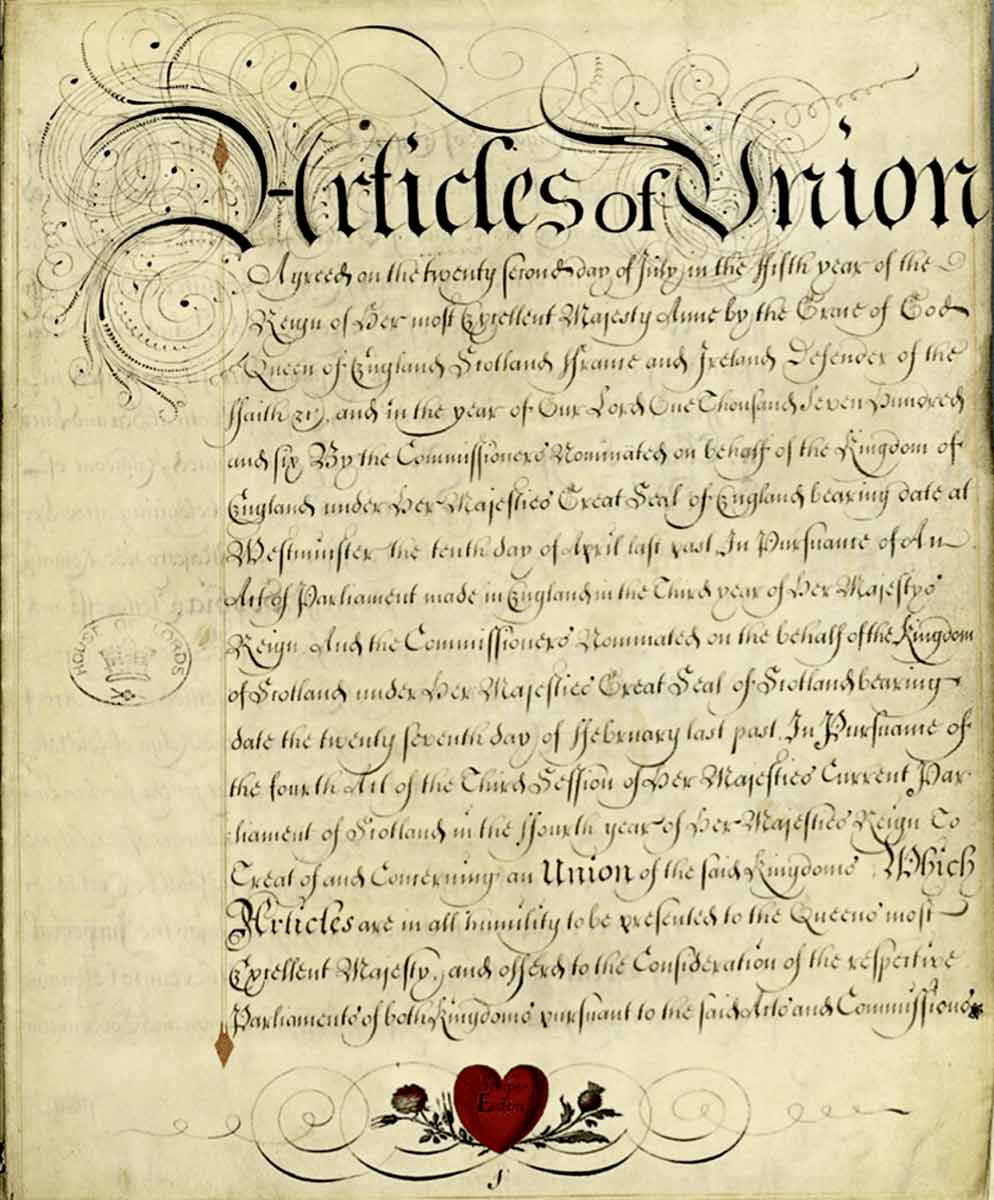 Articles of Union
Agreed on the twenty second day of July, in the ffifth year of the
Reign of Her most Excellent Majesty Anne by the Grace of God
Queen of England Scotland ffrance and Ireland Defender of the
ffaith &c, and in the year of Our Lord One Thousand Seven Hundred
and six By the Commissioners Nominated on behalf of the Kingdom of
England under Her Majesties Great Seal of England bearing date at
Westminster the tenth day of April last past In Pursuance of An
Act of Parliament made in England in the Third year of Her Majestys
Reign And the Commissioners Nominated on the behalf of the Kingdom
of Scotland under Her Majesties Great Seal of Scotland bearing
date the twenty seventh day of ffebruary last past In Pursuance of
the fourth Act of the Third Session of Her Majesties Current Par-
liament of Scotland in the ffourth year of Her Majesties Reign To
Treat of and Concerning an Union of the said Kingdoms Which
Articles are in all humility to be presented to the Queens most
Excellent Majesty, and offerd to the Consideration of the respective
Parliaments of both Kingdoms pursuant to the said Acts and Commissions
HOUSE OF LORDS